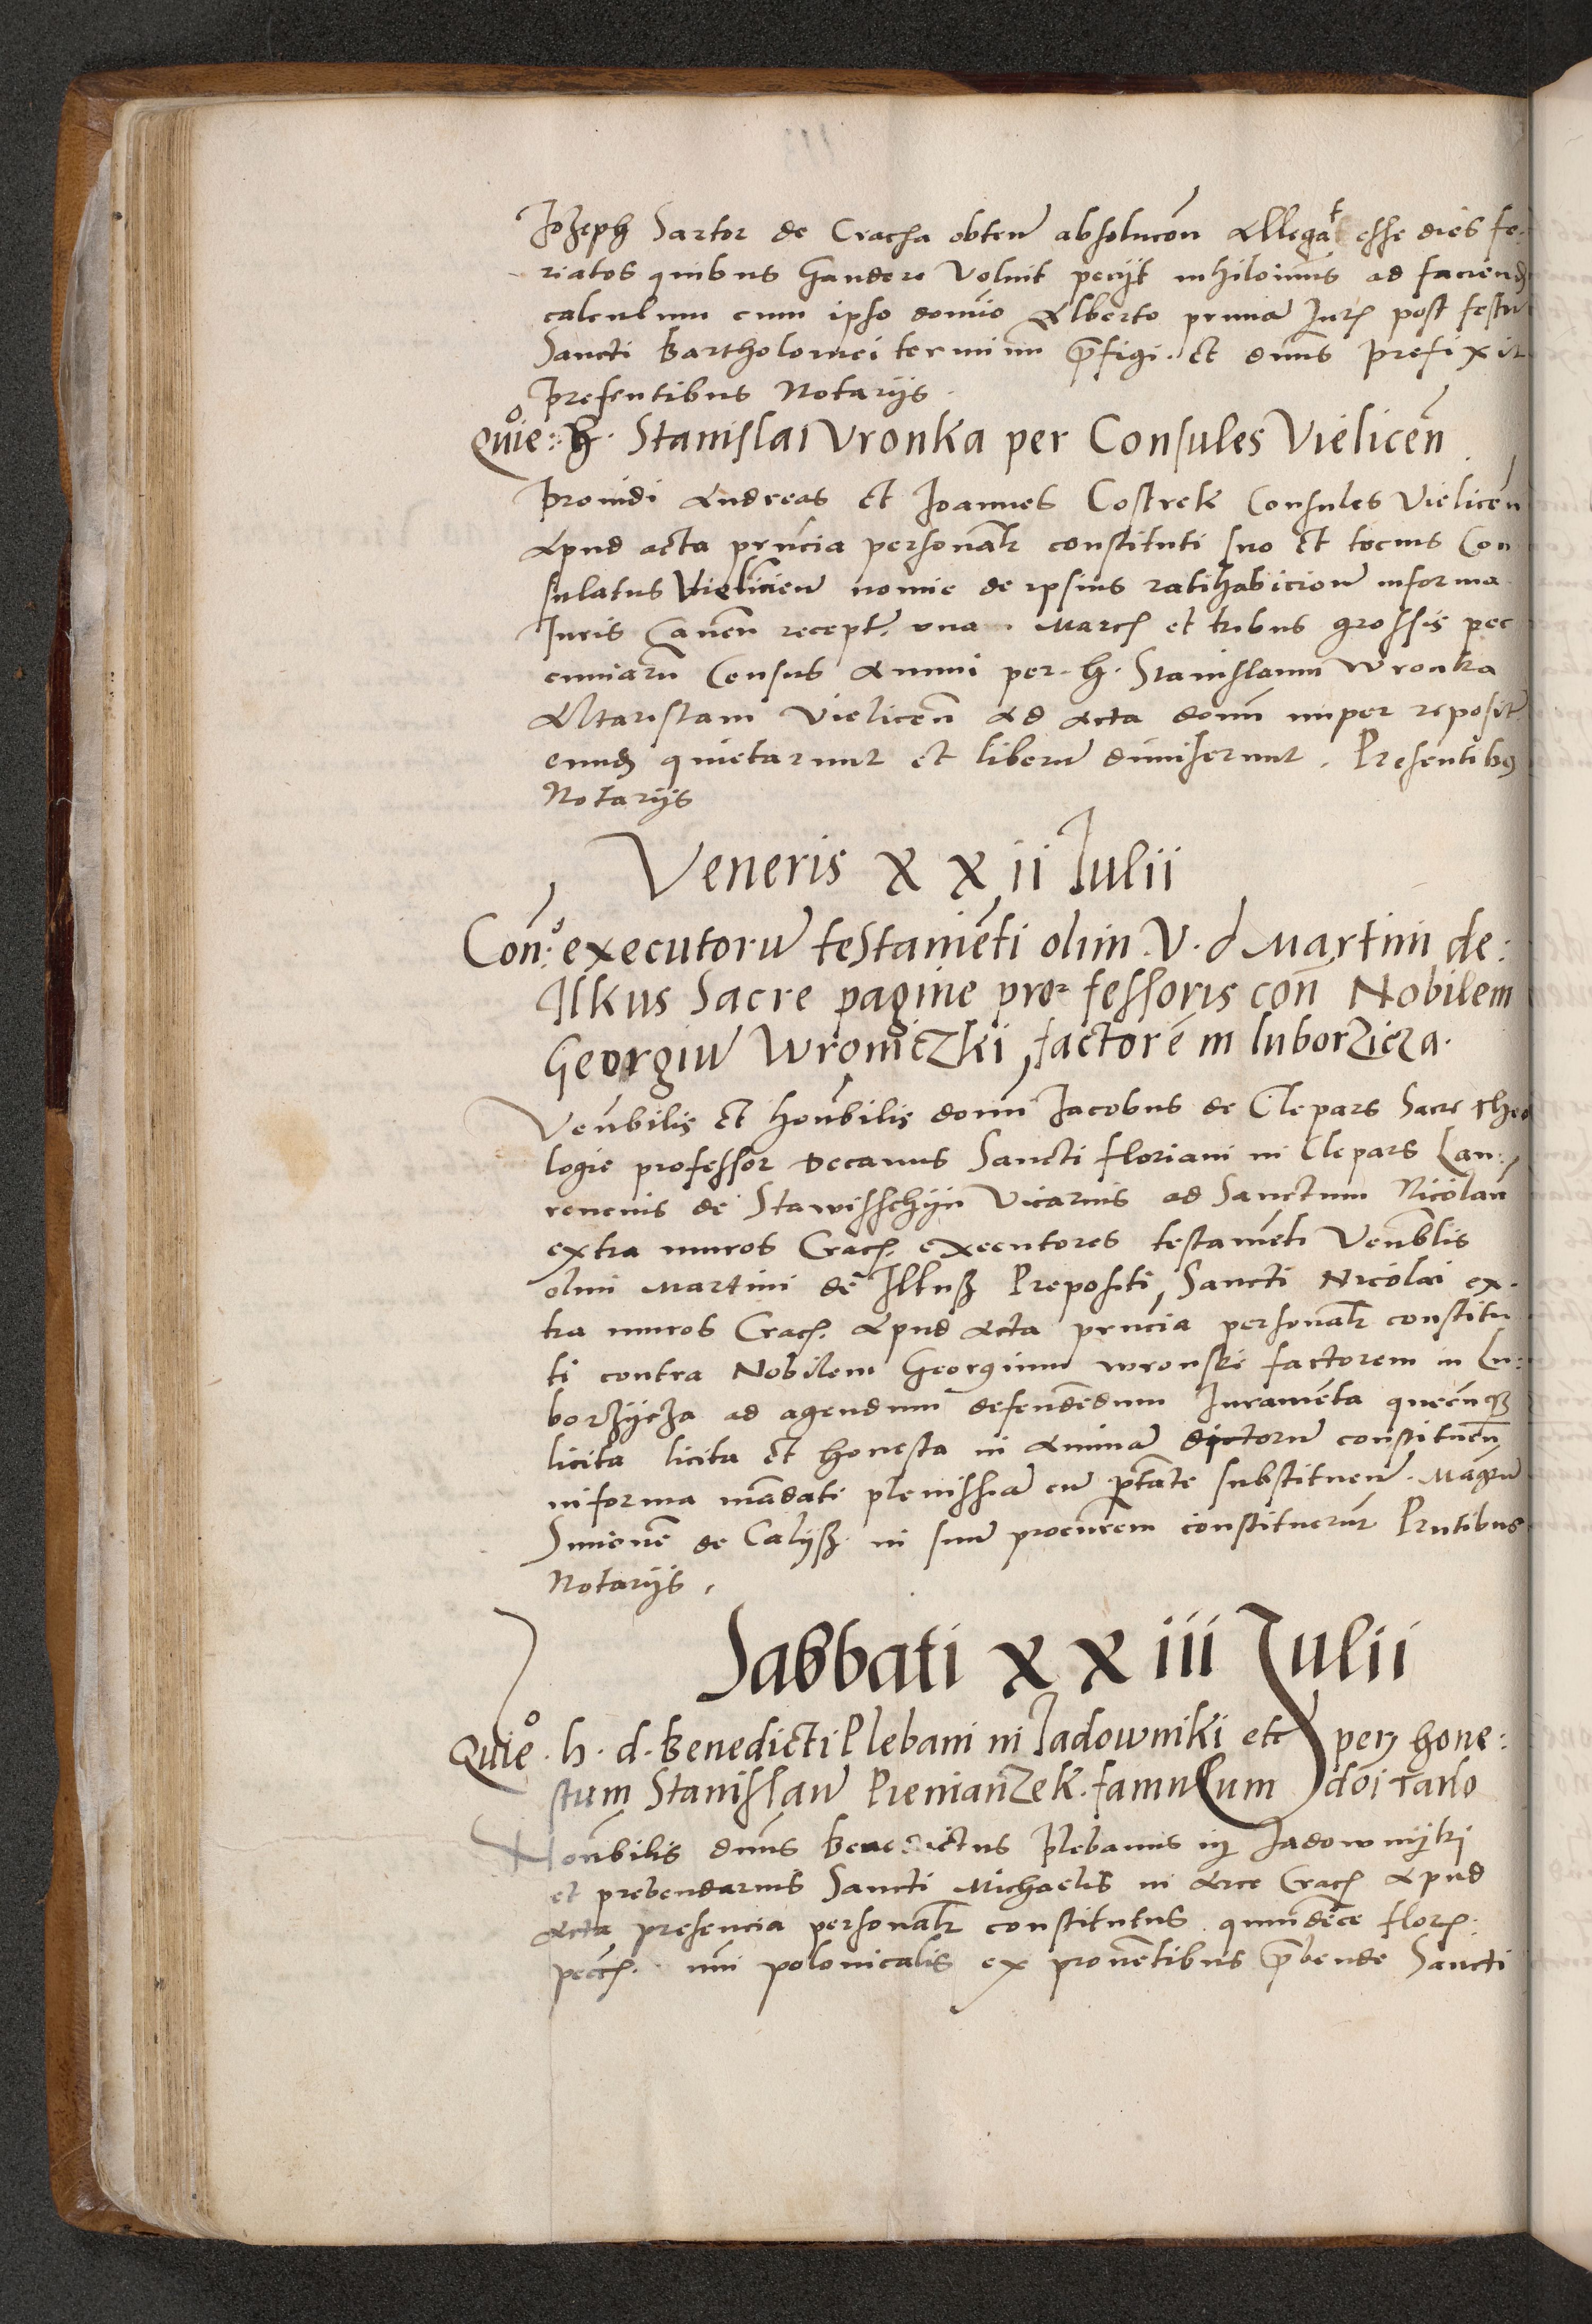 Jozeph Sartor de Cracha obtenꝰ absolucōn Allegat esse dies fe-
riatos quibus Gaudere Voluit peciit nihilominus ad faciend
calculum cum ipso domīo Alberto prima Jurꝭ post festū
Sancti Bartholomei terminū p̄figi. et dn̄us prefixit
presentibus Notariis.
Quie:º h. Stanislai Vronka per Consules Vielicen̄
Prouidi Andreas et Joannes Costrek Consules Vielicen̄
Apud acta prn̄cia personalr constituti suo et tocius Con
sulatus Vieliciēn nomie de ipsius ratihabicione in forma
Juris Cauen̄ recepta. una Marcꝭ et tribus grossis pec
cuniarū Census Annui per h. Stanislaum Wronka
Altaristam Vielicen̄ Ad Acta domī nuper reposit
eundꝫ quietarunt et liberū dimiserunt. Presentibꝰ
Notariis
Veneris xxii Julii
Con:º executorū testamēti olim V. d Martini de:
Ilkus Sacre pagine pro- fessoris con̄ Nobilem
Georgiū Wroniczki, factorē in luborzicza.
Ven̄bilis et hon̄bilis domī Jacobus de Clepars Sacre Theo
logie professor Decanus Sancti Floriani in Clepars Lau:
rencius de Stawisschyn Vicarius ad Sanctum Nicolaū
extra muros Cracꝭ. executores testamēti Ven̄blis
olim Martini de Ilkusz Prepositi Sancti Nicolai ex-
tra muros Cracꝭ. Apud Acta prn̄cia personalr constitu
ti contra Nobilem Georgium Wronski factorem in Lu:
borzycza ad agendum defendēdum Juramēta quecūqꝫ
licita licita et honesta in Animā dictorū constituen̄
in forma mādati plenissiā cū ptāte substituen̄. Magrū
Simonē de Calysz in suū procurem constituerūt Prntibus
Notariis.
Sabbati xxiii Julii
Quieº. h. d. Benedicti Plebani in Jadowniki etc per hone:
stum Stanislaū Pienianzek. famulum doi rado
Hon̄bilis dn̄us Benedictus Plebanus in Jadownyki
et prebendarius Sancti Michaelis in Arce Cracꝭ Apud
Acta presencia personalr constitutus. quindēce florꝭ.
peccꝭ. nūi polonicalis ex prouētibus p̄bende Sancti